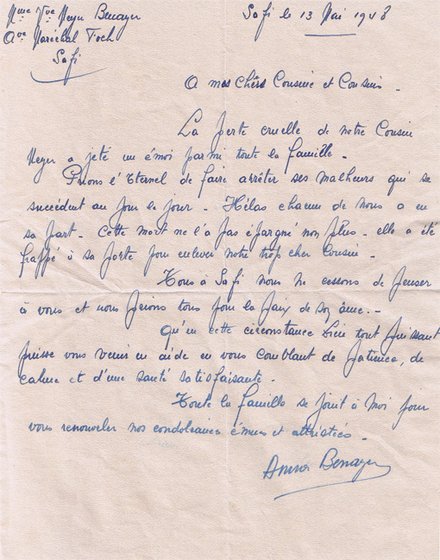 Mme Vve Meyer Benayer
Ave Maréchal Foch
Safi
Safi le 13 Mai 1948
A mes Chers Cousine et Cousin.
La perte cruelle de notre Cousin
Meyer a jeté un émoi parmi toute la famille.
Prions l'Eternel de faire arrêter ses malheurs qui se
succèdent au jour le jour. Hélas chacun de nous a eu
sa part. Cette mort ne l'a pas épargné non plus. elle a été
frappé à sa porte pour enlever notre trop cher Cousin.
Nous à Safi nous ne cessons de penser
à vous et nous prions tous pour la paix de son âme.
Qu'en cette circonstance Dieu tout puissant
puisse vous venir en aide en vous comblant de patience, de
calme et d'une santé satisfaisante.
Toute la famille se joint à moi pour
vous renouveler nos condoléances émues et attristées.
Benayer